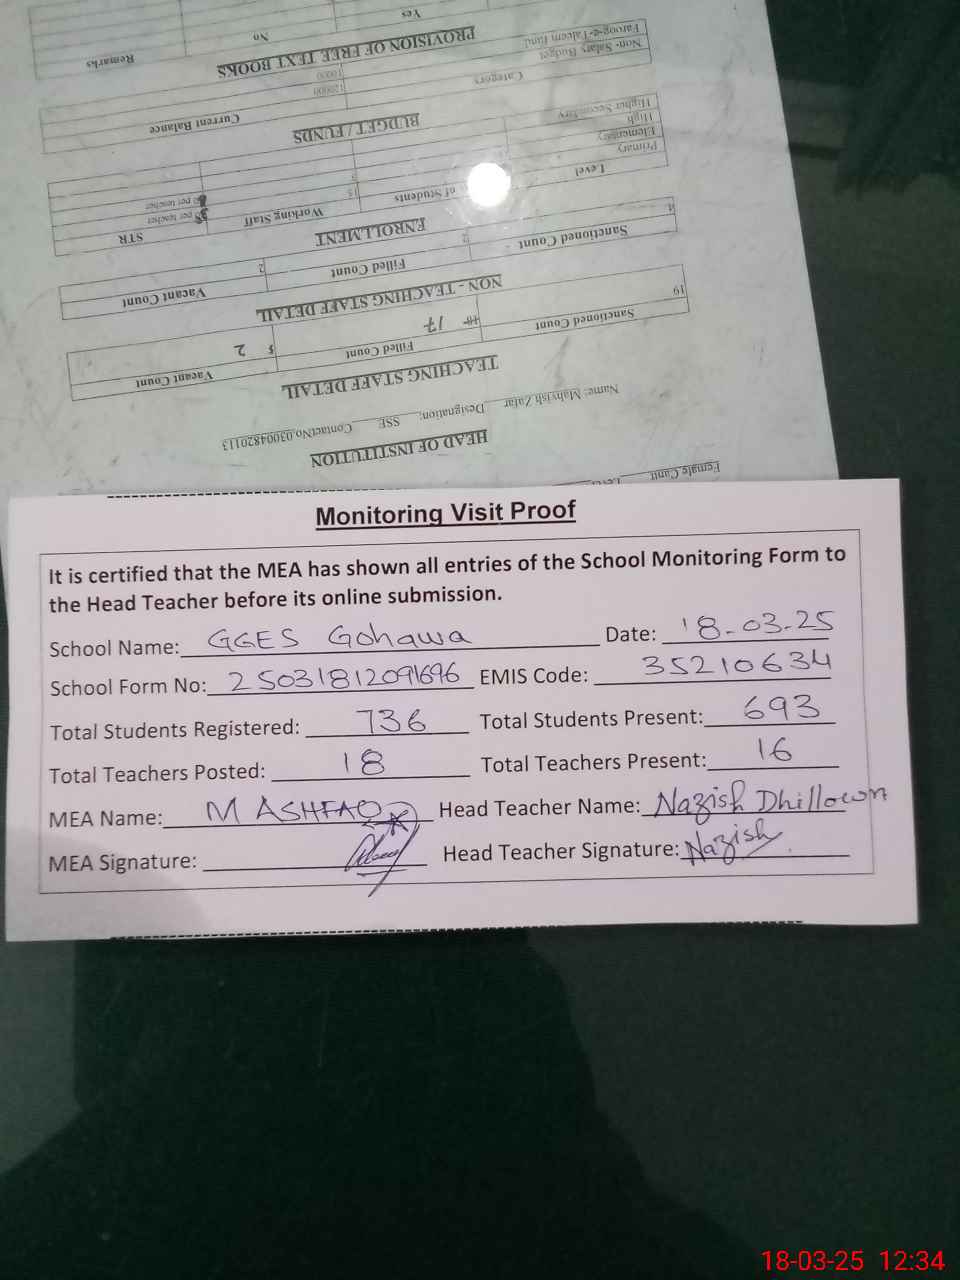 Monitoring Visit Proof
It is certified that the MEA has shown all entries of the School Monitoring Form to
the Head Teacher before its online submission.
School Name: GGES Gohawa Date: 18-03-25
School Form No: 25031812091696 EMIS Code: 35210634
Total Students Registered: 736 Total Students Present: 693
Total Teachers Posted: 18 Total Teachers Present: 16
MEA Name: M ASHFAQ Head Teacher Name: Nazish Dhillown
MEA Signature: Head Teacher Signature: Nazish
Female Cantt
HEAD OF INSTITUTION
Name: Mahvish Zafar Designation: SSE ContactNo.03004820113
TEACHING STAFF DETAIL
Sanctioned Count Filled Count Vacant Count
19 17 2
NON - TEACHING STAFF DETAIL
Sanctioned Count Filled Count Vacant Count
2
ENROLLMENT
Level of Students Working Staff STR
Primary 15 per teacher
Elementary per teacher
High
Higher Secondary
BUDGET / FUNDS
Category Current Balance
Non- Salary Budget 120000
Faroog-e-Taleem fund 10000
PROVISION OF FREE TEXT BOOKS
Yes No Remarks
18-03-25 12:34